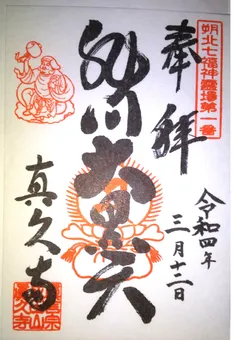 朔北七福神霊場第一番
奉拝
令和四年
三月十二日
旭川大黒天
真久寺